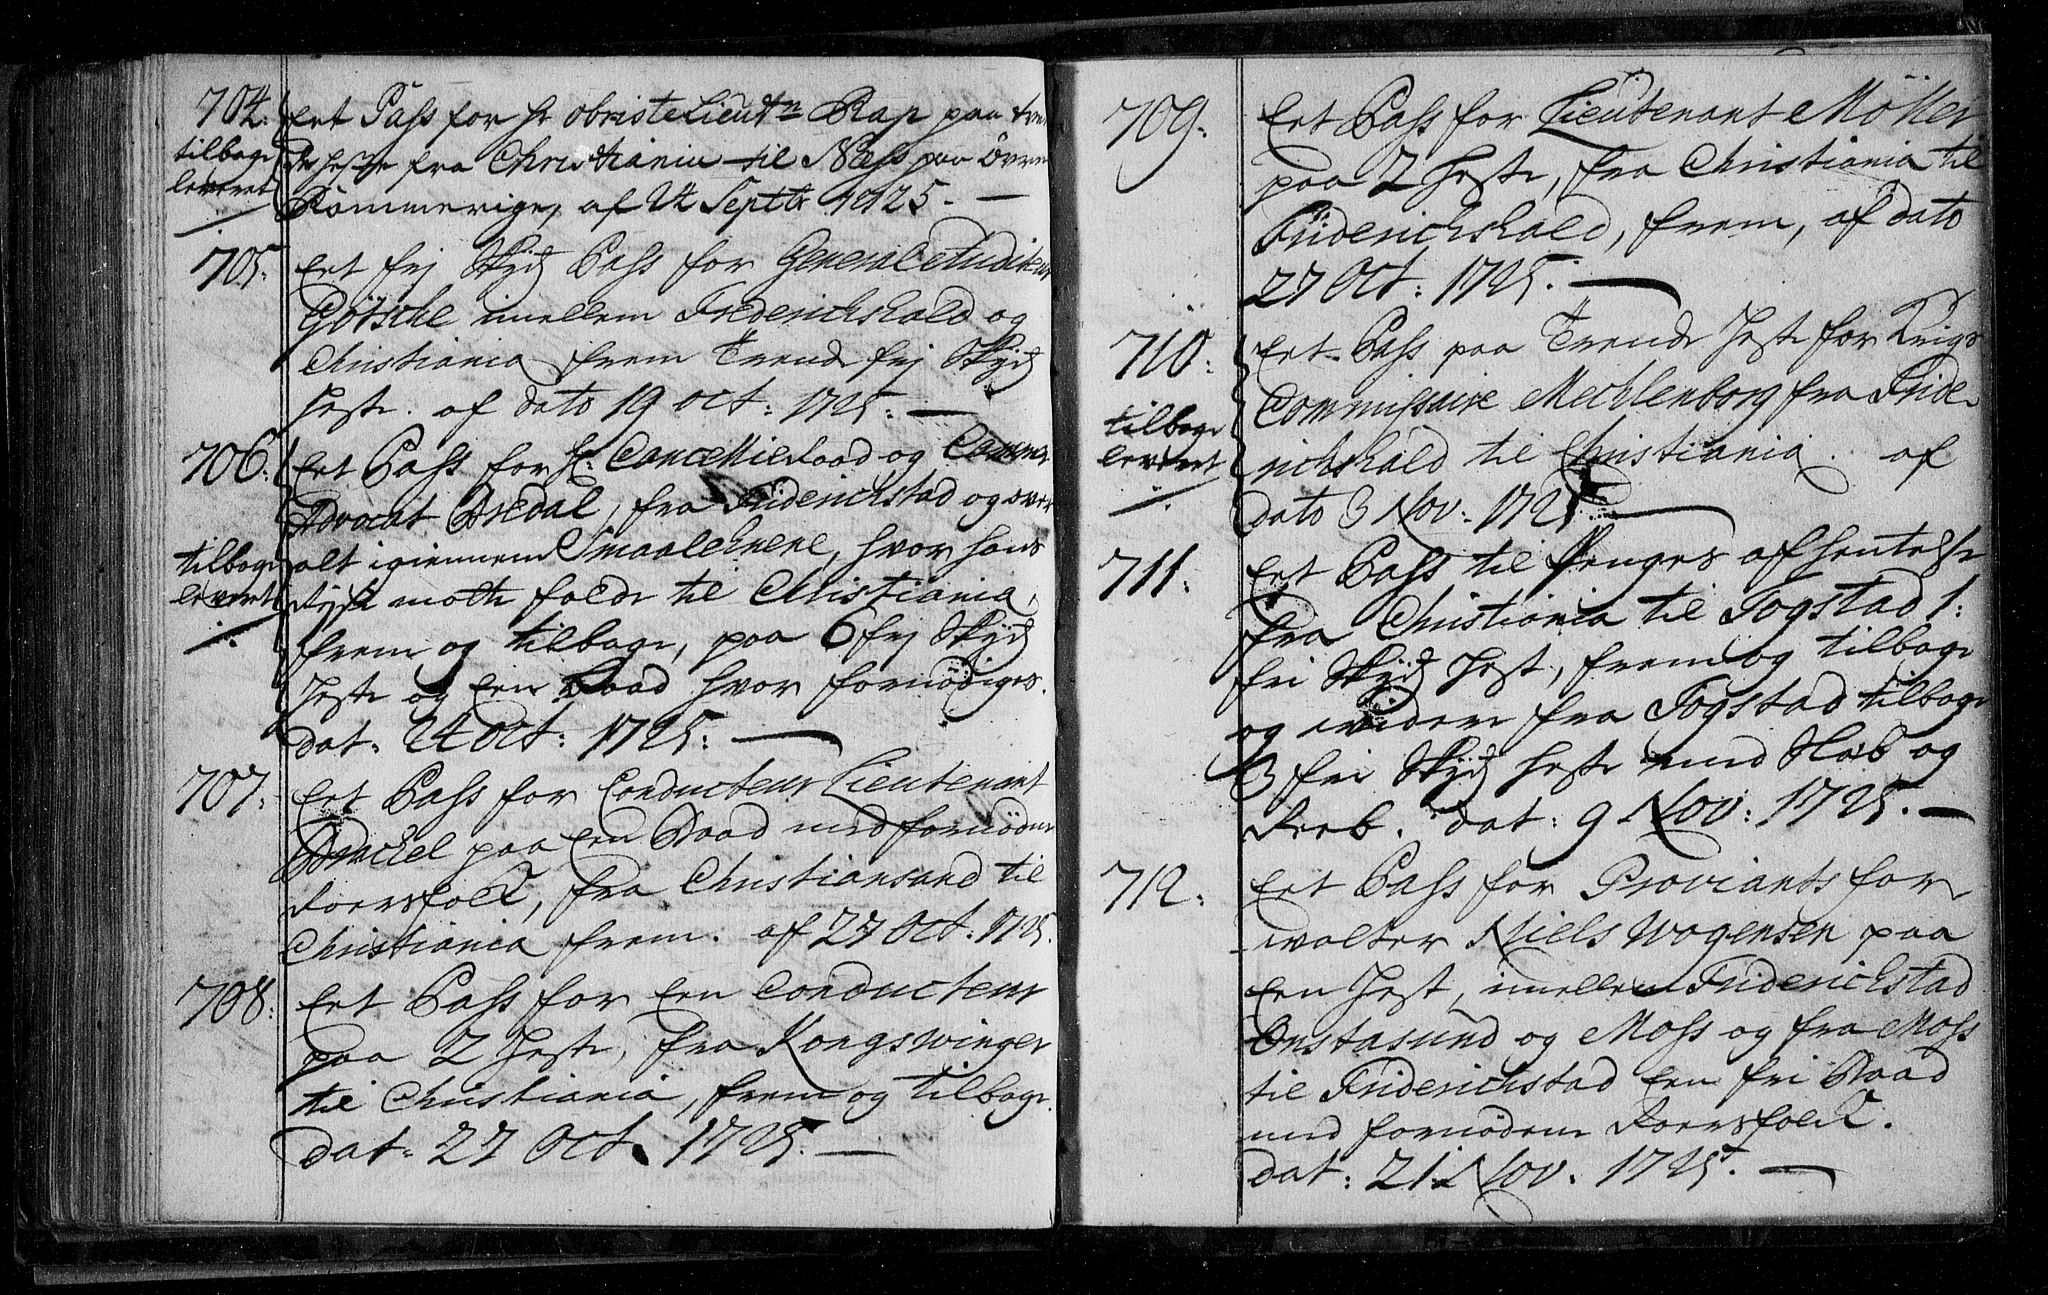 704.
Eet Pass for hr obristeLieutn Rap paa tre
de heste fra Christiania til Næss paa Övre
Rommerige, af 24 Septbr 1725. —
tilbage
leveret
705.
Eet frj Skydz Pass for General Auditeur
Götsche imellem Friderichshald og
Christiania frem Trende frj Skydz
heste. af dato 19 oct: 1725. —
706.
Eet Pass for hr. CancellieRaad og Cammer
Advocat Dredal, fra Friderichstad og over
alt igiennem Smaalehnene, hvor hans
Rejse motte falde til Christiania,
frem og tilbage, paa 6 frj Skydz
heste og een Baad hvor fornödiges.
dat. 24 Oct: 1725: —
tilbage
levert
707.
Eet Pass for Conducteur Lieutenant
paa een Baad med fornöden
Roersfolck, fra Christiansand til
Christiania frem. af 27 Oct. 1725.
708.
Eet Pass for een Conducteur
paa 2 heste, fra Kongswinger
til Christiania, frem og tilbage.
dat. 27 Oct. 1725. —
709.
Eet Pass for Lieutenant Möller
paa 2 heste, fra Christiania til
Friderichshald, frem, af dato
27 Oct: 1725. —
710.
Eet Pass paa Trende heste for Krigs
Commissaire Mechlenborg fra Fride-
richshald til Christiania. af
dato 3 Nov: 1725 —
tilbage
levert
711.
Eet Pass til Penges afhentelse
fra Christiania til Togstad 1:
fri Skydz hest, frem og tilbage
og widere fra Togstad tilbage
3 fri Skydz heste med Slæb og
Reeb. dat: 9 Nov: 1725. —
712.
Eet Pass for Proviants for
walter Niels Wogensen paa
een hest, imellem Friderichstad
Onstasund og Moss og fra Moss
til Friderichstad een fri Baad
med fornöden Roersfolck.
dat: 21 Nov. 1725. —